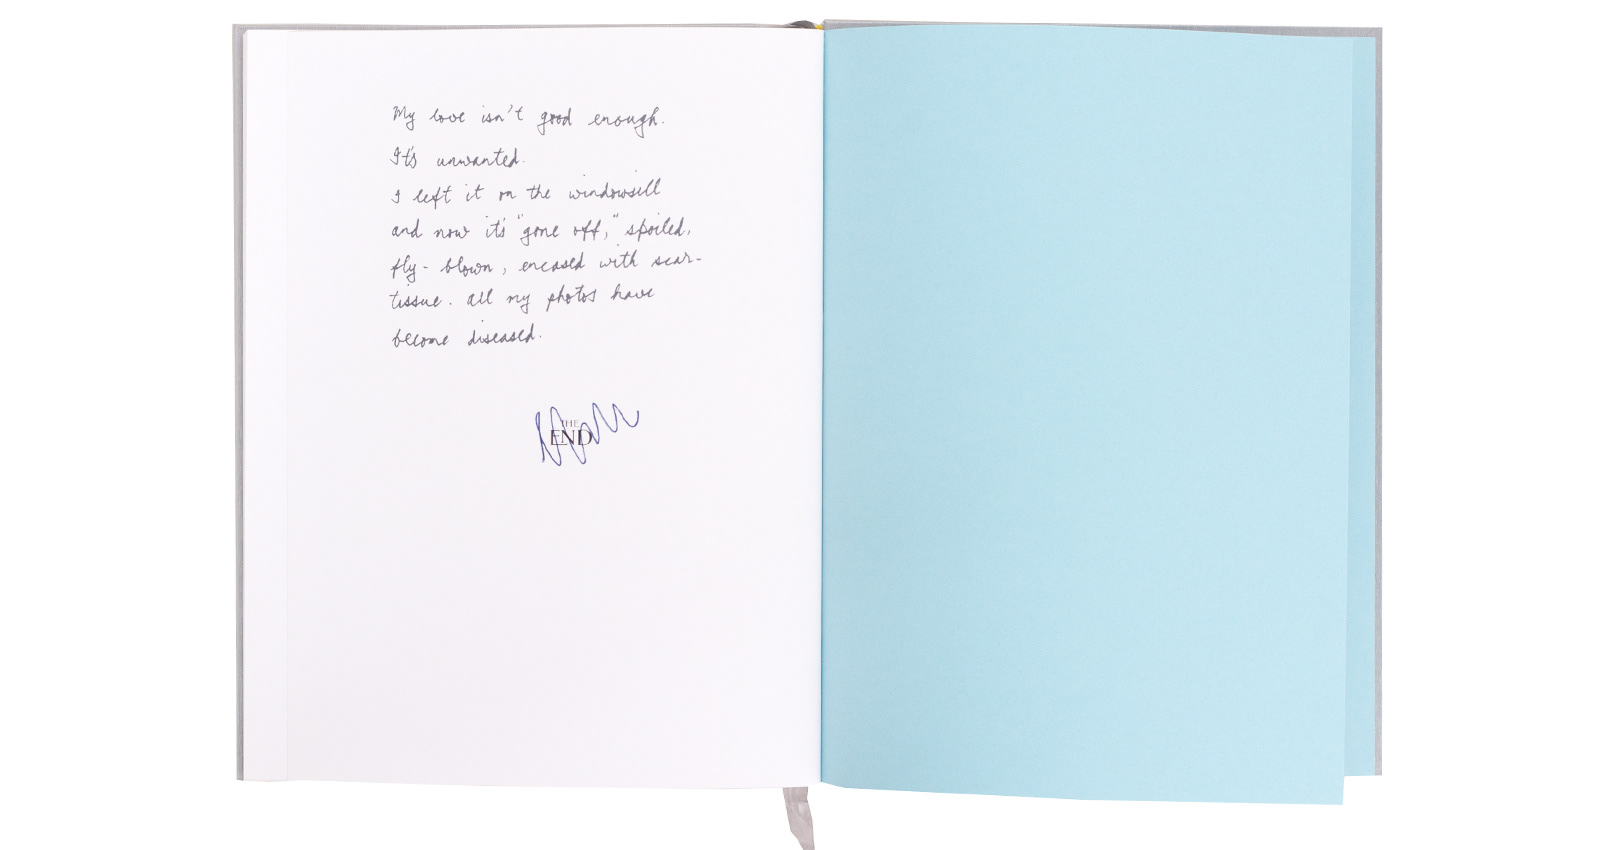 My love isn't good enough.
It's unwanted.
I left it on the windowsill
and now it's "gone off," spoiled,
fly-blown, encased with scar-
tissue. All my photos have
become diseased.
THE
END